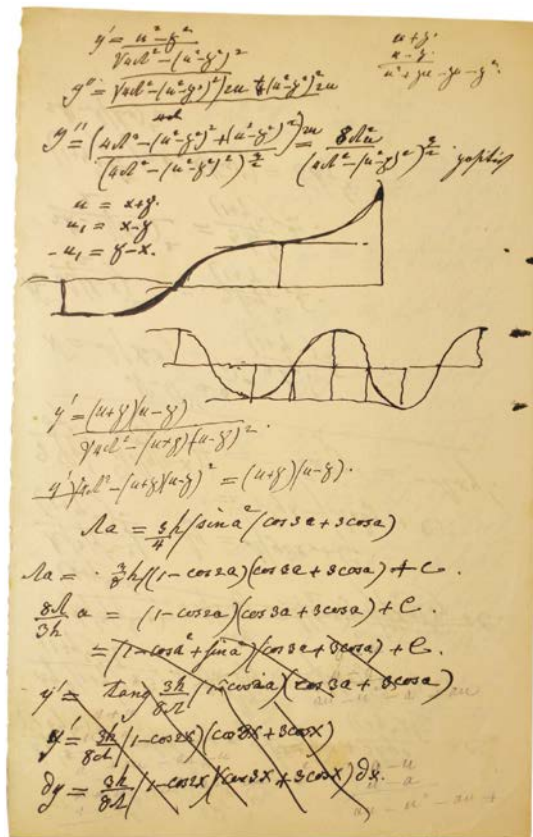 y' = (u² - z²) / √(4Λ² - (u² - z²)²)
u + z
u - z
u² + zu - zu - z².
y'' = (√(4Λ² - (u² - z²)²)) 2u + (u² - z²)² 2u
y'' = ((4Λ² - (u² - z²)² + (u² - z²)²) 2u) / (4Λ² - (u² - z²)²)^(3/2) = 8Λ²u / (4Λ² - (u² - z²)²)^(3/2)
u = x + z.
u₁ = x - z
- u₁ = z - x.
y' = (u + z)(u - z) / √(4Λ² - (u + z)(u - z)².
4Λ² - (u + z)(u - z)² = (u + z)(u - z).
Λa = 3/4 h (sin a² (cos 3a + 3cos a)
Λa = 3/8 h ((1 - cos 2a)(cos 3a + 3cos a) + C.
8Λ/3h a = (1 - cos 2a)(cos 3a + 3cos a) + C.
= (1 - cos a² + sin a²)(cos 3a + 3cos a) + C.
y' = tang 3h/8Λ (1 - cos 2a)(cos 3a + 3cos a)
y' = 3h/8Λ (1 - cos 2x)(cos 3x + 3cos x)
∂y = 3h/8Λ (1 - cos 2x)(cos 3x + 3cos x) ∂x.